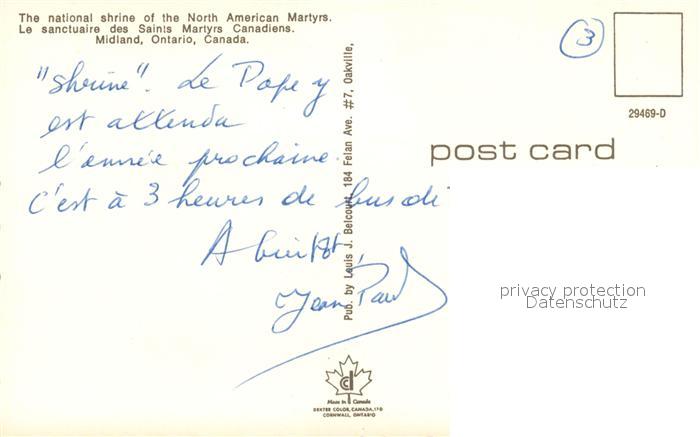 The national shrine of the North American Martyrs.
Le sanctuaire des Saints Martyrs Canadiens.
Midland, Ontario, Canada.
3
29469-D
post card
"shrine". Le Pape y
est attendu
l'année prochaine.
C'est à 3 heures de bus d'i
A bientôt,
Jean Paul
Pub. by Louis J. Belcourt, 184 Felan Ave. #7, Oakville,
privacy protection
Datenschutz
cd
Made in Canada
DEXTER COLOR, CANADA, LTD
CORNWALL, ONTARIO